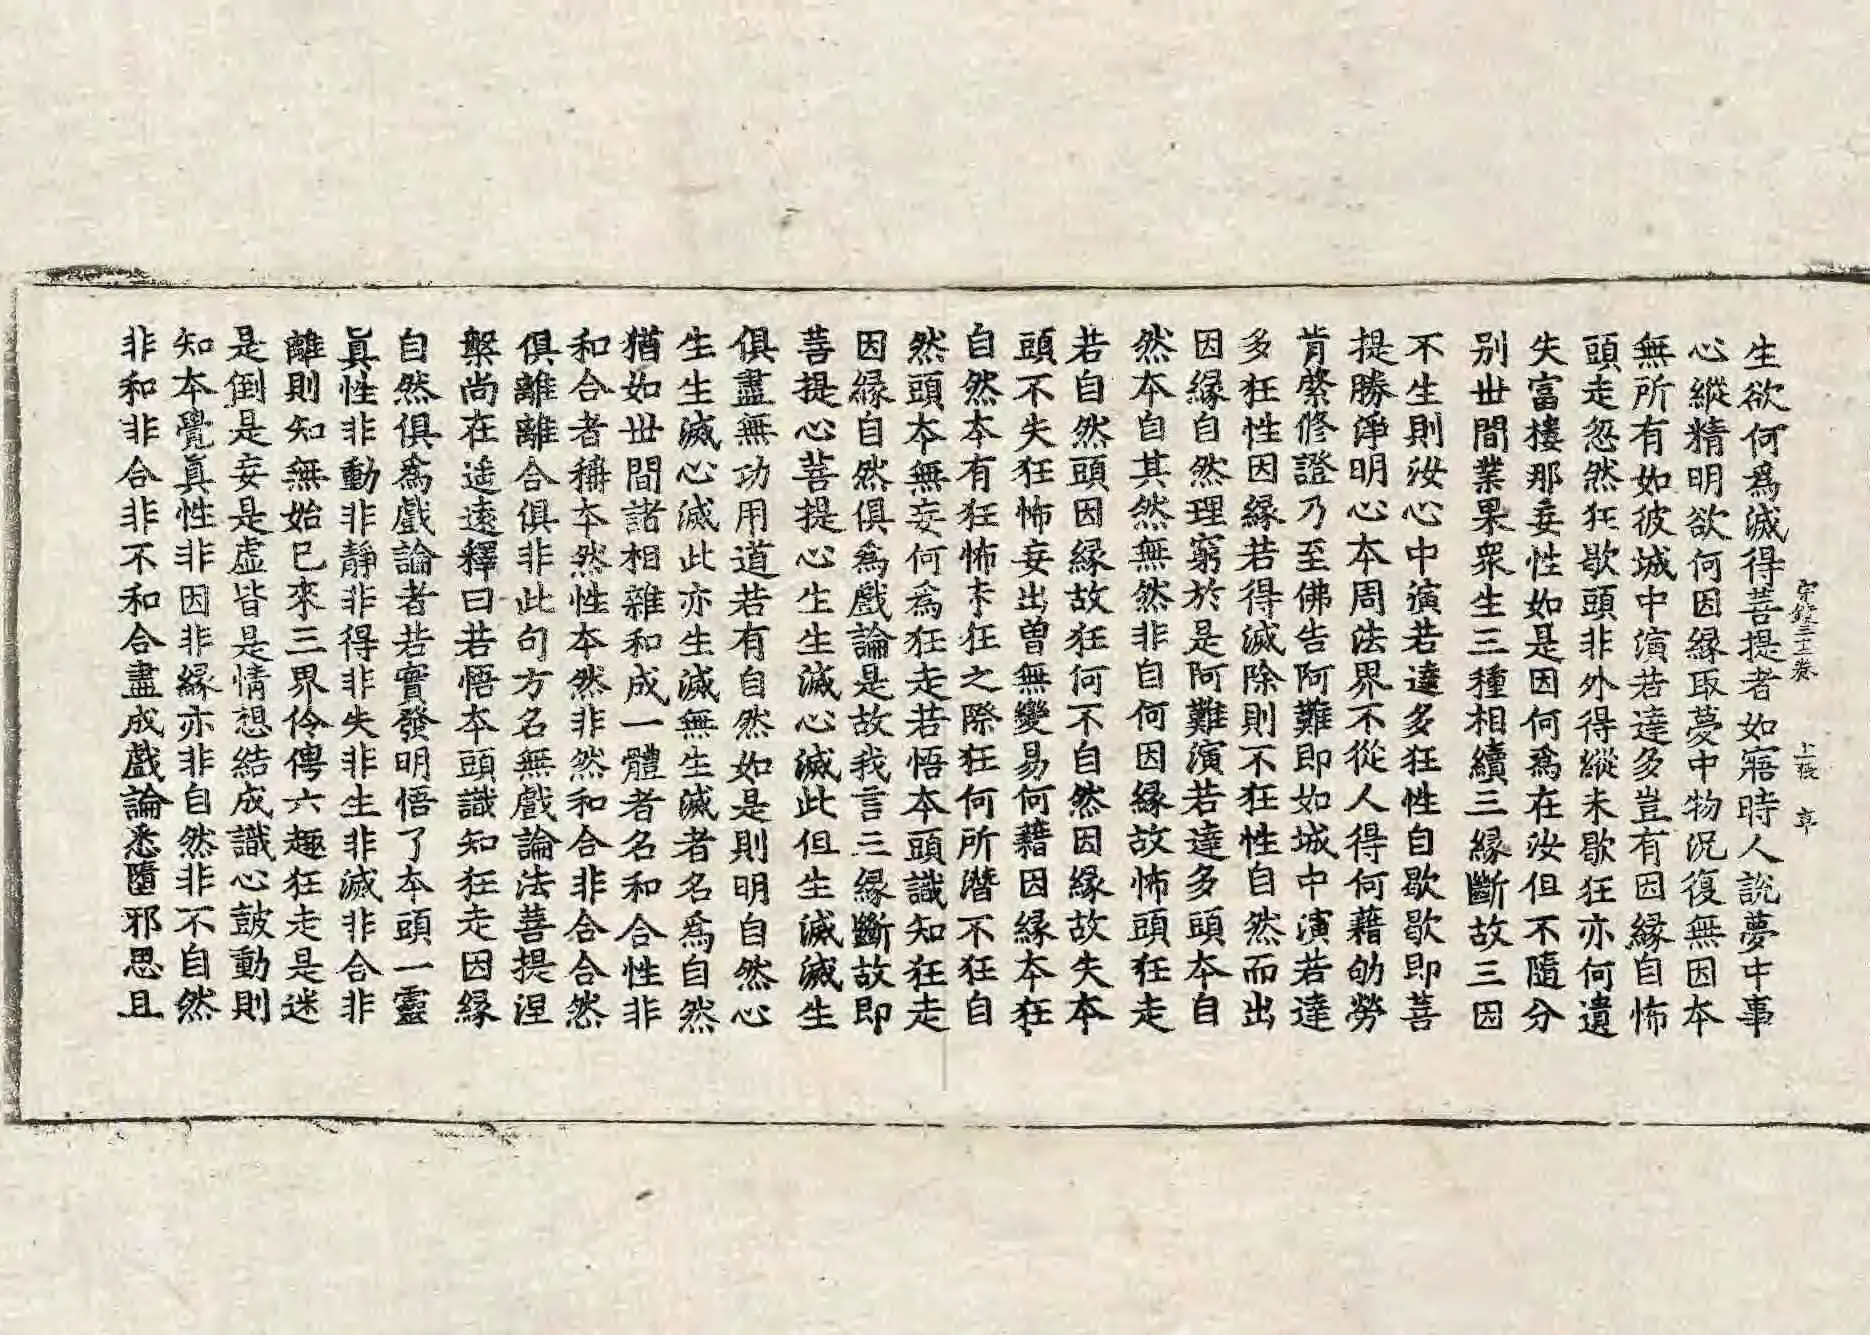 生欲何爲滅得菩提者如寤時人說夢中事
心縱精明欲何因緣取夢中物況復無因本
無所有如彼城中演若達多豈有因緣自怖
頭走忽然狂歇頭非外得縱未歇狂亦何遺
失富樓那妄性如是因何爲在汝但不隨分
别丗間業果衆生三種相續三緣斷故三因
不生則汝心中演若達多狂性自歇歇即菩
提勝淨明心本周法界不從人得何藉劬勞
肯綮修證乃至佛告阿難即如城中演若達
多狂性因緣若得滅除則不狂性自然而出
因緣自然理窮於是阿難演若達多頭本自
然本自其然無然非自何因緣故怖頭狂走
若自然頭因緣故狂何不自然因緣故失本
頭不失狂怖妄出曽無變易何藉因緣本狂
自然本有狂怖未狂之際狂何所潛不狂自
然頭本無妄何爲狂走若悟本頭識知狂走
因緣自然俱爲戲論是故我言三緣斷故即
菩提心菩提心生生滅心滅此但生滅滅生
俱盡無功用道若有自然如是則明自然心
生生滅心滅此亦生滅無生滅者名爲自然
猶如丗間諸相雜和成一體者名和合性非
和合者稱本然性本然非然和合非合合然
俱離離合俱非此句方名無戲論法菩提涅
槃尚在遙遠釋曰若悟本頭識知狂走因緣
自然俱爲戲論者若實發明悟了本頭一靈
眞性非動非靜非得非失非生非滅非合非
離則知無始已來三界伶俜六趣狂走是迷
是倒是妄是虛皆是情想結成識心鼓動則
知本覺眞性非因非緣亦非自然非不自然
非和非合非不和合盡成戲論悉墮邪思且